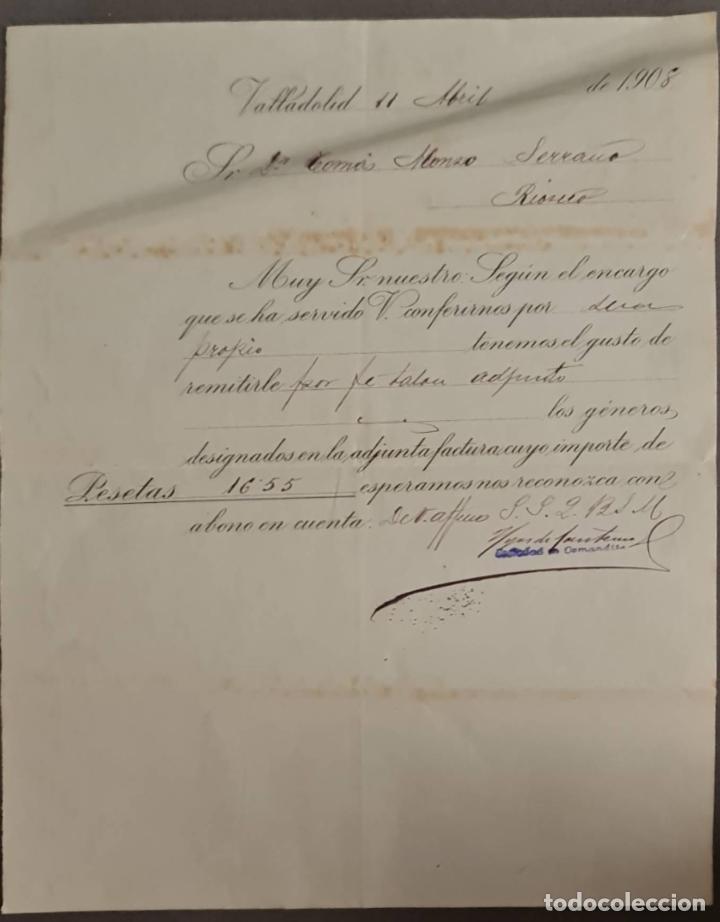 Valladolid 11 Abril de 1908
Sr. Dn Tomás Alonso Serrano
Rioseco
Muy Sr. nuestro: Según el encargo
que se ha servido V. conferirnos por
propio tenemos el gusto de
remitirle por fe talon adjunto
los géneros,
designados en la adjunta factura cuyo importe de
Pesetas 16'55 esperamos nos reconozca con
abono en cuenta. De V. affmo S. S. Q. B. S. M
Hijos de
Sociedad en Comandita
todocoleccion
todocoleccion.net